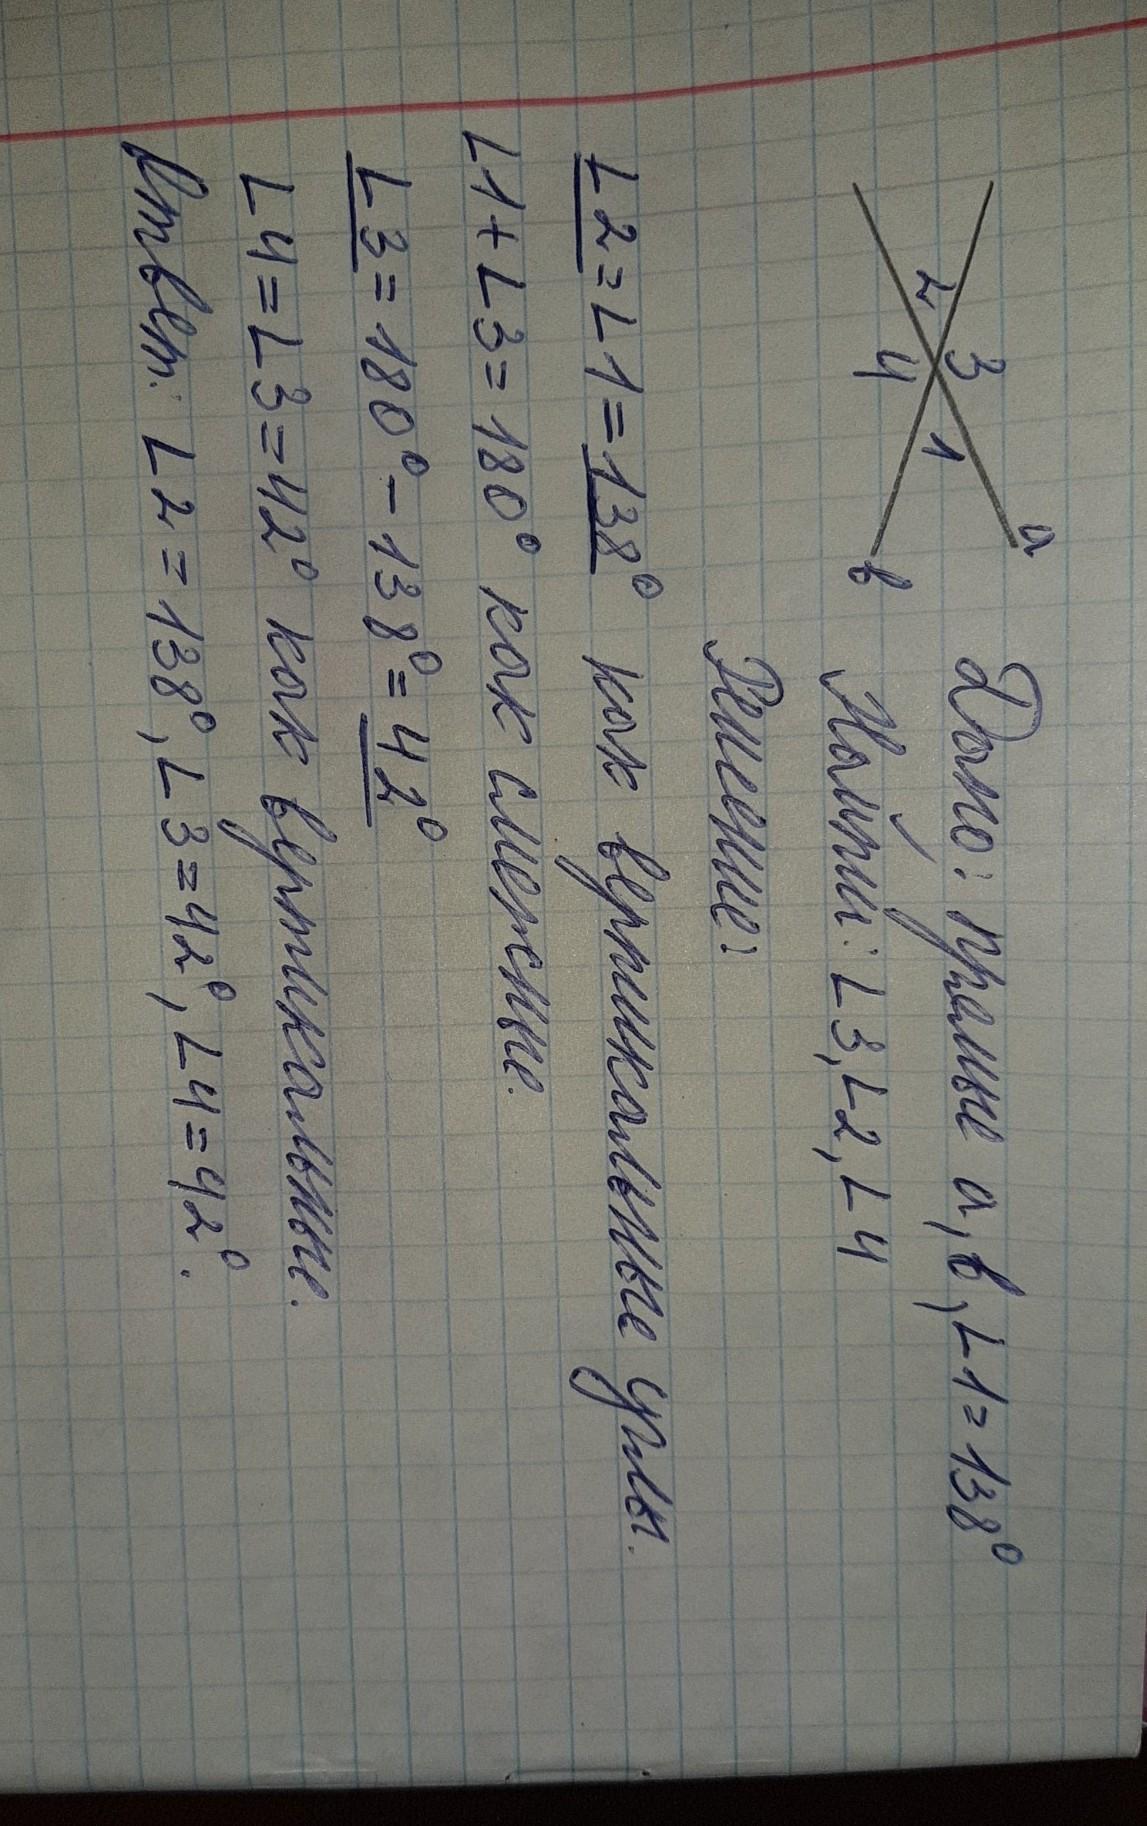 a
3
2
1
4
b
Дано: прямые a, b, ∠1=138°
Найти: ∠3, ∠2, ∠4
Решение:
∠2=∠1=138° как вертикальные углы.
∠1+∠3=180° как смежные.
∠3=180°-138°=42°
∠4=∠3=42° как вертикальные.
Ответ: ∠2=138°, ∠3=42°, ∠4=42°.